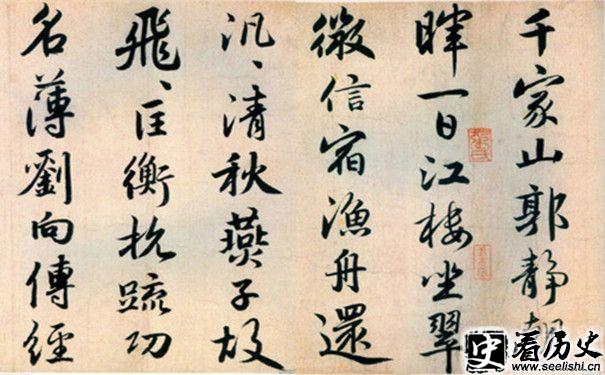 千家山郭靜朝
暉一日江樓坐翠
微信宿漁舟還
汎〻清秋燕子故
飛〻匡衡抗疏功
名薄劉向傳經
史 看历史
www.seelishi.cn